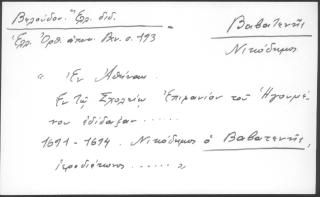 Βηλούδον. Ἑλλ. διδ. =
Ἑλλ. Ὀρθ. ἀποικ. Βεν. σ. 193
Βαβατενῆς
Νικόδημος
« Ἐν Ἀθήναις
Ἐν τῷ Σχολείῳ Ἐπιφανίου τοῦ Ἡγουμέ-
νου ἐδίδαξαν ......
1691 - 1694. Νικόδημος ὁ Βαβατενῆς,
ἱεροδιάκονος ...... »